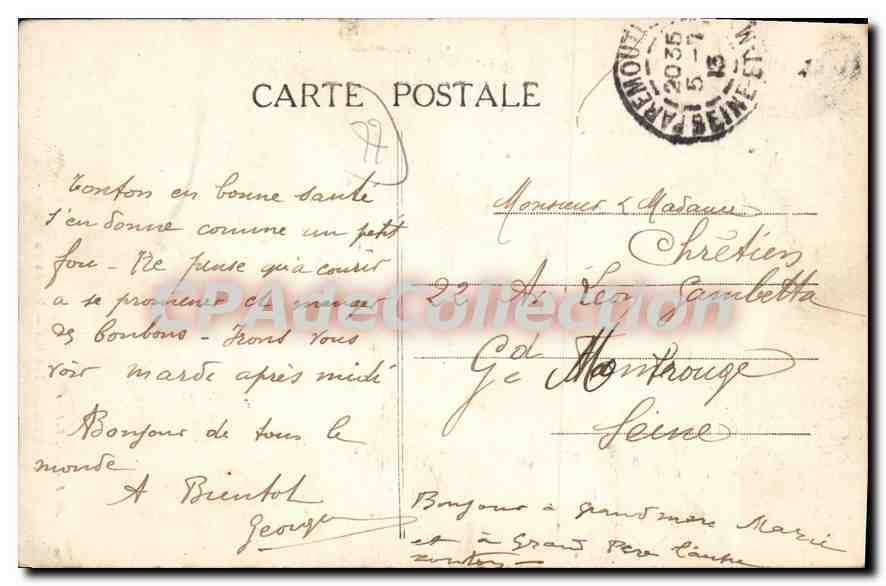 CARTE POSTALE
77
FAREMOUTI
SEINE-ET-M
2035
5-7
13
Tonton en bonne santé
s'en donne comme un petit
fou - Ne pense qu'à courir
a se promener et manger
des bonbons - Irons vous
voir mardi après midi
Bonjour de tous le
monde
A Bientot
Georges
Monsieur & Madame
Chrétien
22 Av Léon Gambetta
Gd Montrouge
Seine
Bonjour à grand mère Marie
et à Grand Pere l'autre
tonton
CPAdeCollection